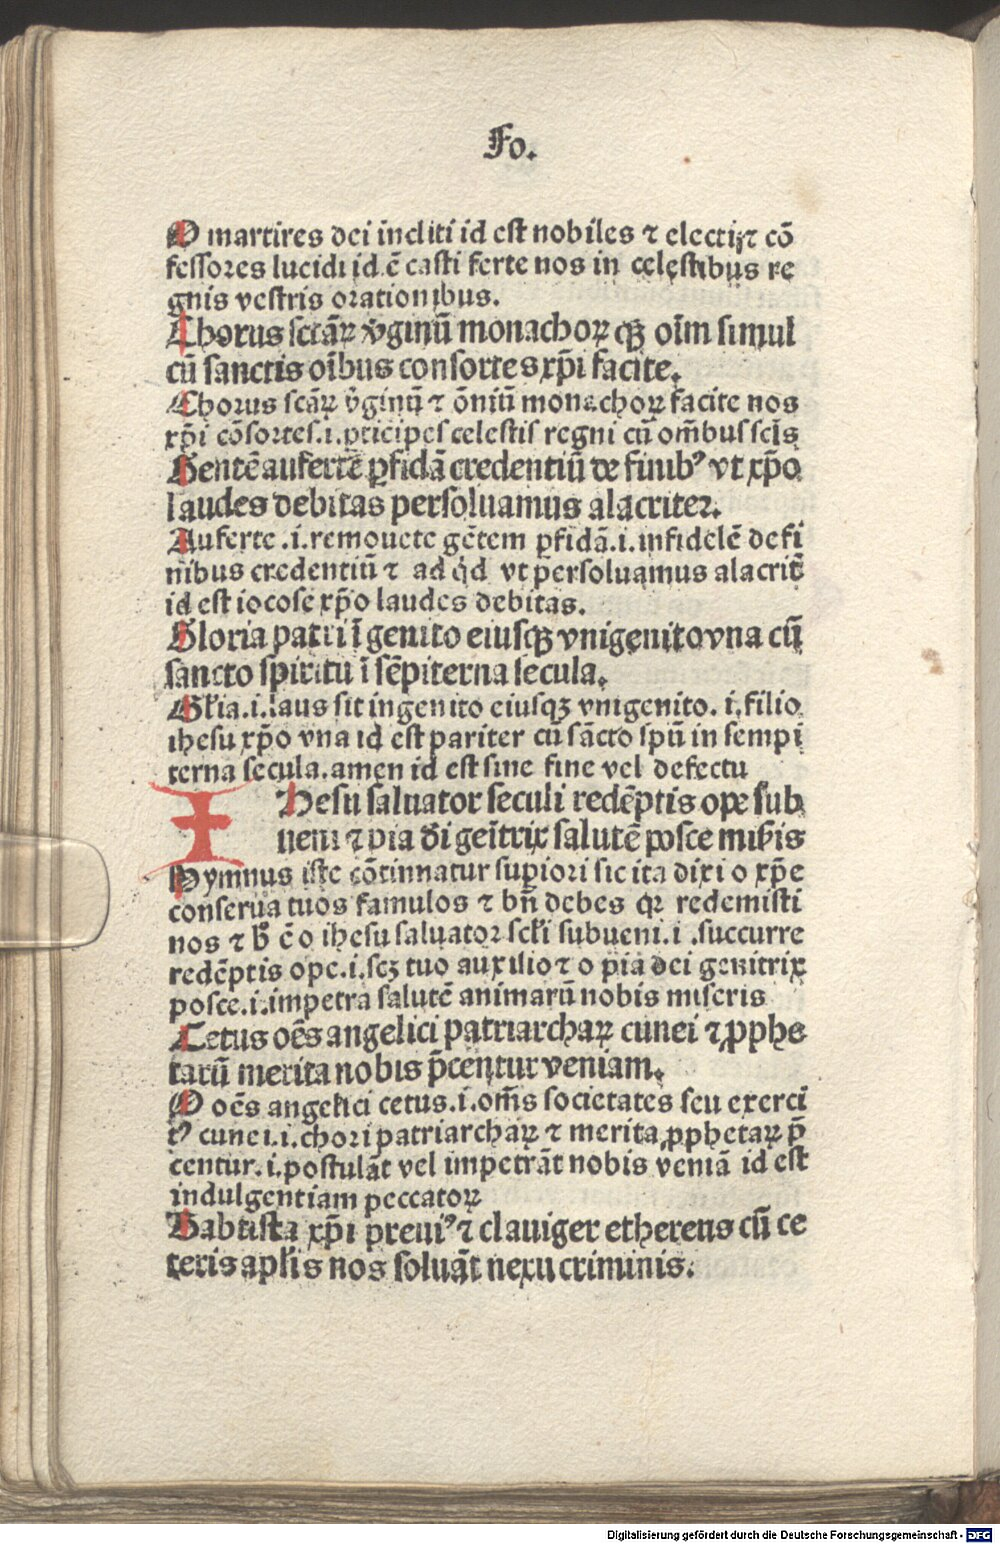 Fo.
O martires dei incliti id est nobiles ⁊ electi ⁊ cō
fessores lucidi id ē casti ferte nos in celestibus re
gnis vestris orationibus.
Chorus sctāꝝ v̄ginū monachoꝝ qꝫ oīm simul
cū sanctis oībus consortes xp̄i facite.
Chorus scāꝝ v̄ginū ⁊ ōniū monachoꝝ facite nos
xp̄i cōsortes .i. pticipes celestis regni cū om̄ibus sctīs
Gentē auferte ꝑfidā credentiū de finibꝰ vt xp̄o
laudes debitas persoluamus alacriter.
Auferte .i. remouete gētem ꝑfidā .i. infidelē de fi
nibus credentiū ⁊ ad q̇d vt persoluamus alacrit̄
id est iocose xp̄o laudes debitas.
Gloria patri īgenito eiusqꝫ vnigenito vna cū
sancto spiritu ī sēpiterna secula.
Gl̄ia .i. laus sit ingenito eiusqꝫ vnigenito .i. filio
ihesu xp̄o vna id est pariter cū sācto spū in sempi
terna secula. amen id est sine fine vel defectu
Ihesu saluator seculi redēptis ope sub
ueni ⁊ pia dī genītrix salutē posce mis̄is
Hymnus iste cōtinnatur supiori sic ita dixi o xp̄e
conserua tuos famulos ⁊ bn̄ debes qꝛ redemisti
nos ⁊ h̄ ē o ihesu saluator scl̄i subueni .i. succurre
redēptis ope .i. scꝫ tuo auxilio ⁊ o pia dei genitrix
posce .i. impetra salutē animarū nobis miseris
Cetus oēs angelici patriarchaꝝ cunei ⁊ ꝓphe
tarū merita nobis p̄centur veniam.
O oēs angelici cetus .i. om̄s societates seu exerci
tꝰ cunei .i. chori patriarchaꝝ ⁊ merita ꝓphetaꝝ p̄
centur .i. postulāt vel impetrāt nobis veniā id est
indulgentiam peccatoꝝ
Babtista xp̄i preuiꝰ ⁊ clauiger ethereus cū ce
teris apl̄is nos soluāt nexu criminis.
Digitalisierung gefördert durch die Deutsche Forschungsgemeinschaft - DFG